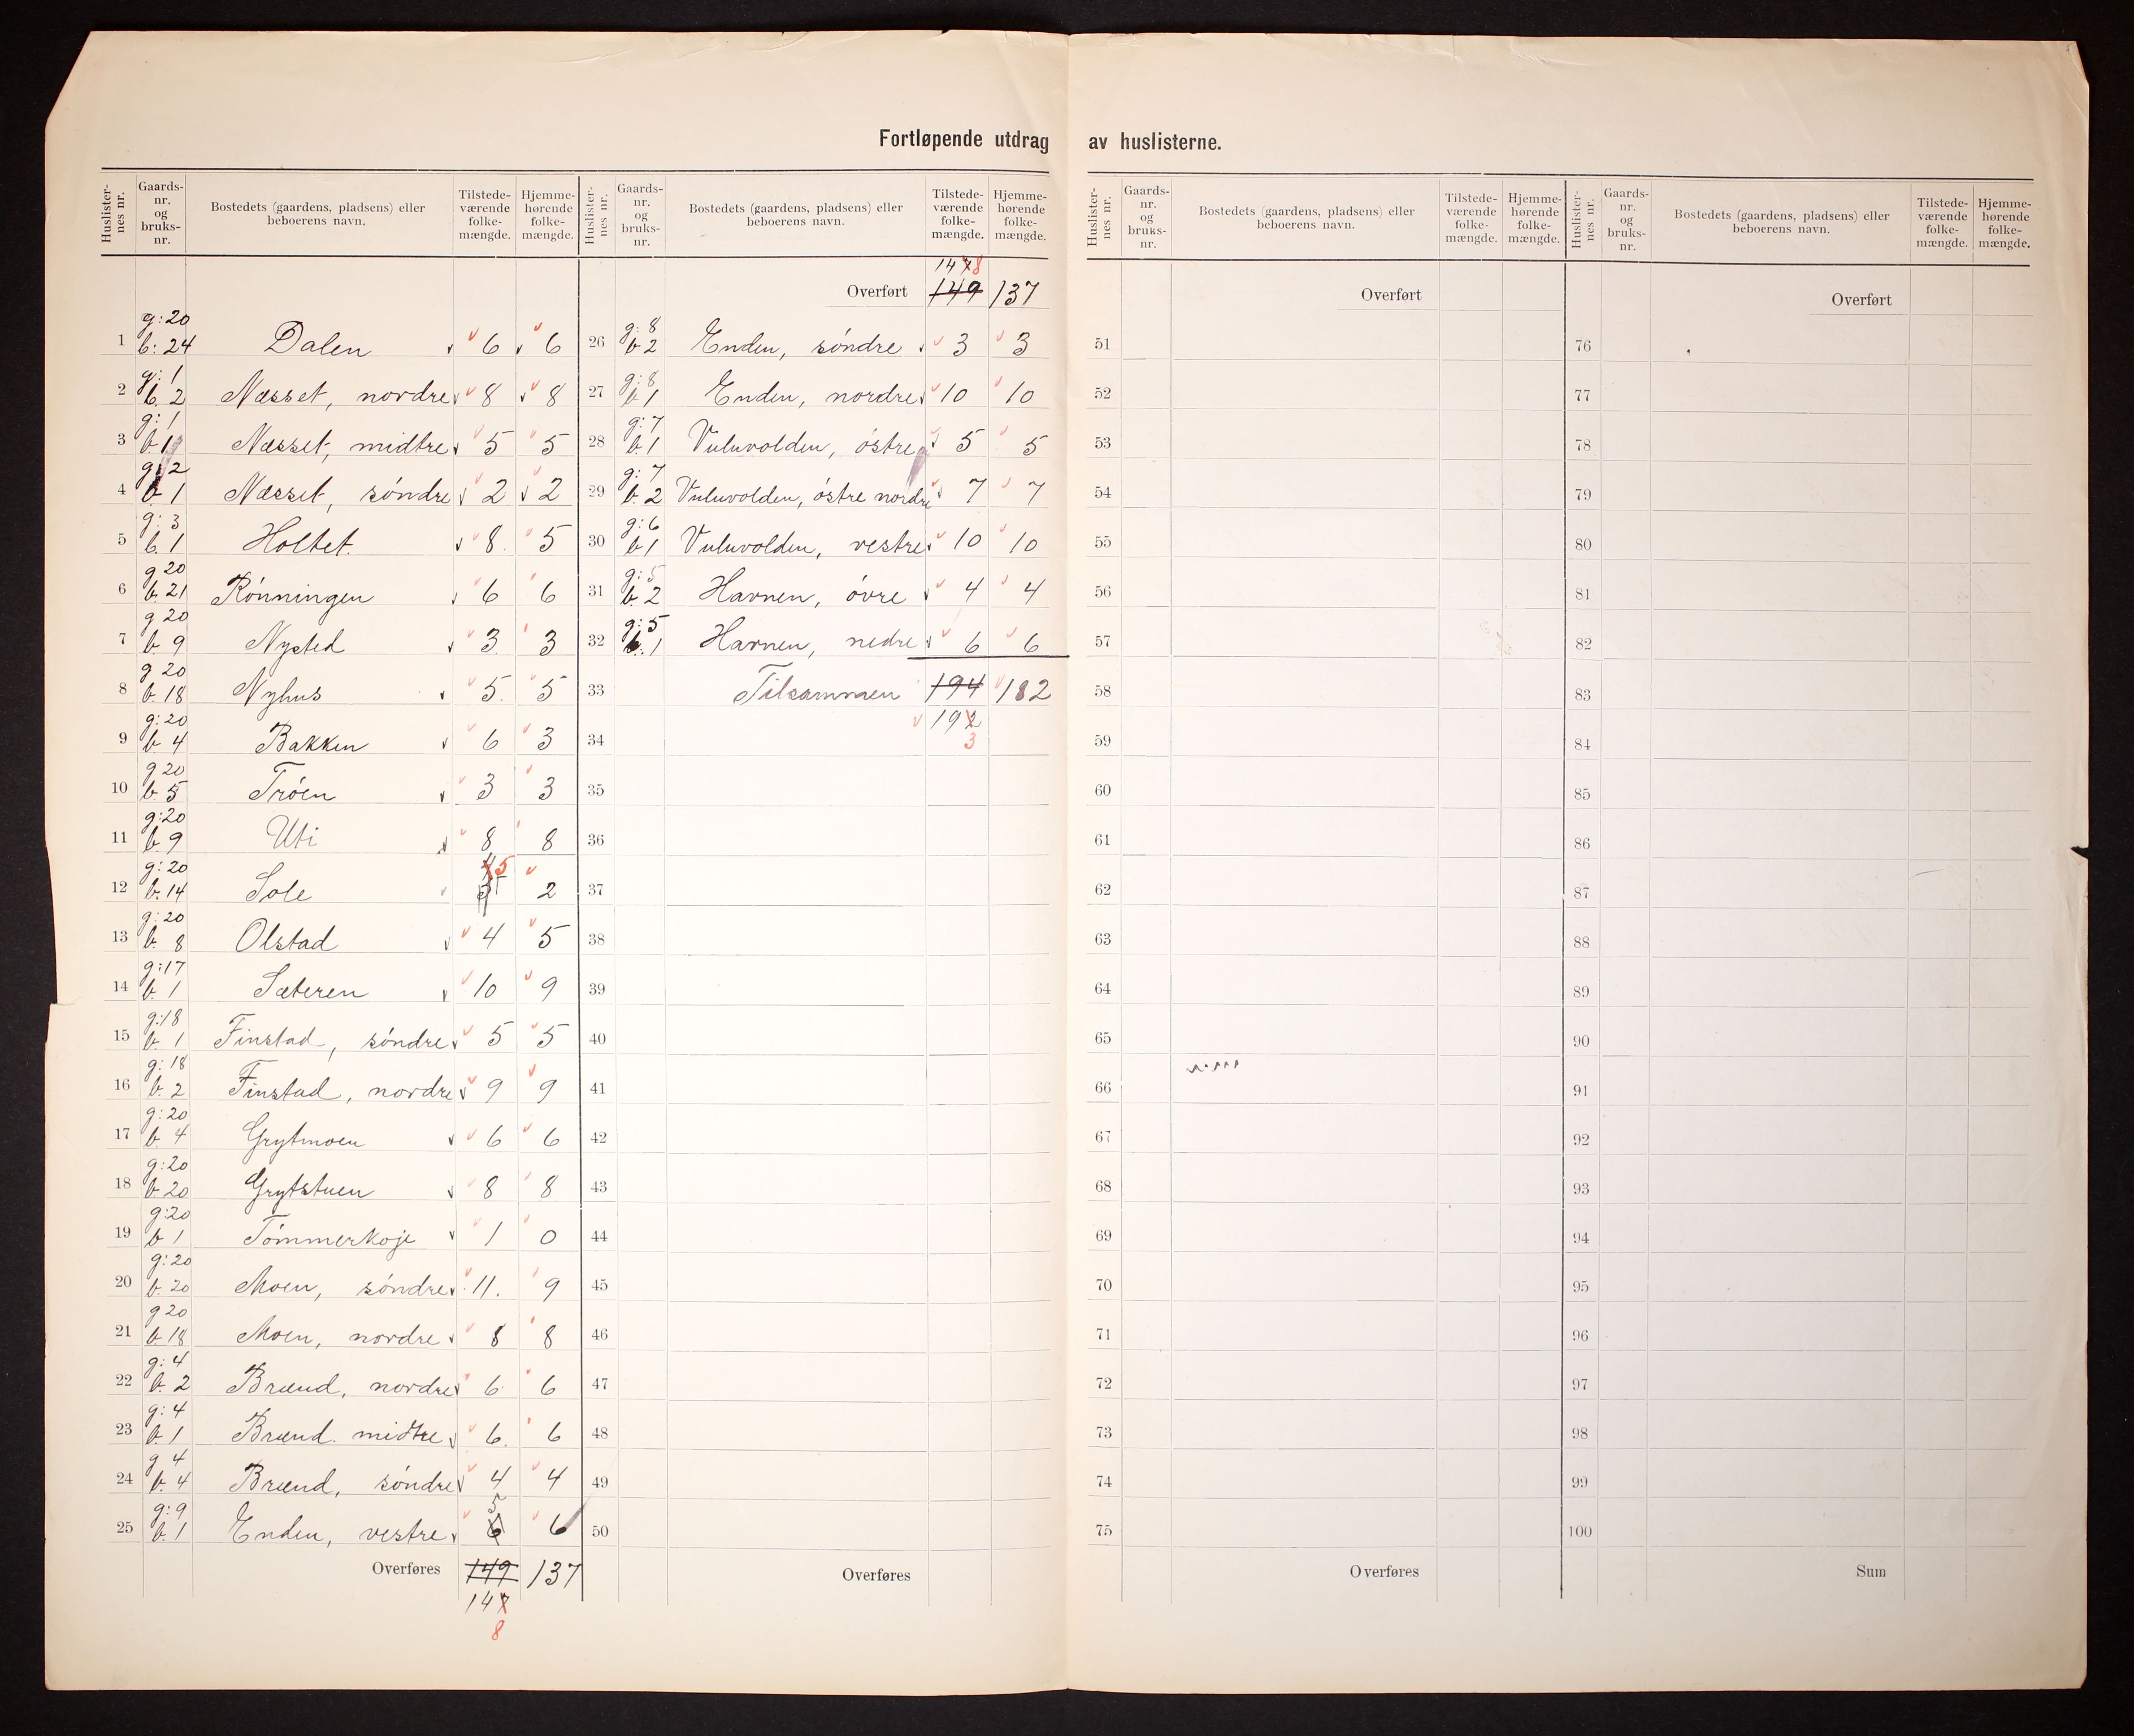 Fortløpende utdrag av huslisterne.
Huslisternes nr. Gaards-nr. og bruks-nr. Bostedets (gaardens, pladsens) eller beboerens navn. Tilstede-værende folke-mængde. Hjemme-hørende folke-mængde.
1 g: 20 b: 24 Dalen 6 6
2 g: 1 b. 2 Næsset, nordre 8 8
3 g: 1 b. 1 Næsset, midtre 5 5
4 g. 2 b. 1 Næsset, söndre 2 2
5 g: 3 b. 1 Holtet. 8. 5
6 g 20 b. 21 Rönningen 6 6
7 g 20 b. 9 Nysted 3. 3
8 g 20 b. 18 Nyhus 5. 5
9 g: 20 b. 4 Bakken 6 3
10 g 20 b. 5 Tröen 3 3
11 g: 20 b. 9 Uti 8 8
12 g: 20 b. 14 Sole 5 2
13 g: 20 b. 8 Olstad 4 5
14 g: 17 b. 1 Sæteren 10 9
15 g: 18 b. 1 Finstad, söndre 5 5
16 g: 18 b. 2 Finstad, nordre 9 9
17 g: 20 b. 4 Grytmoen 6 6
18 g: 20 b. 20 Grytstuen 8 8
19 g: 20 b. 1 Tömmerkoje 1 0
20 g: 20 b. 20 Moen, söndre 11. 9
21 g 20 b. 18 Moen, nordre 8 8
22 g: 4 b. 2 Brænd, nordre 6 6
23 g: 4 b. 1 Brænd. midtre 6. 6
24 g 4 b. 4 Brænd, söndre 4 4
25 g: 9 b. 1 Enden, vestre 6 5 6
Overføres 149 137
147
8
Huslisternes nr. Gaards-nr. og bruks-nr. Bostedets (gaardens, pladsens) eller beboerens navn. Tilstede-værende folke-mængde. Hjemme-hørende folke-mængde.
147 8
Overført 149 137
26 g: 8 b 2 Enden, söndre 3 3
27 g: 8 b 1 Enden, nordre 10 10
28 g: 7 b. 1 Vuluvolden, östre 5 5
29 g: 7 b. 2 Vuluvolden, östre nordre 7 7
30 g: 6 b 1 Vuluvolden, vestre 10 10
31 g: 5 b. 2 Havnen, övre 4 4
32 g: 5 b. 1 Havnen, nedre 6 6
33 Tilsammen 194 182
192
34 3
35
36
37
38
39
40
41
42
43
44
45
46
47
48
49
50
Overføres
Huslisternes nr. Gaards-nr. og bruks-nr. Bostedets (gaardens, pladsens) eller beboerens navn. Tilstede-værende folke-mængde. Hjemme-hørende folke-mængde.
Overført
51
52
53
54
55
56
57
58
59
60
61
62
63
64
65
66
67
68
69
70
71
72
73
74
75
Overføres
Huslisternes nr. Gaards-nr. og bruks-nr. Bostedets (gaardens, pladsens) eller beboerens navn. Tilstede-værende folke-mængde. Hjemme-hørende folke-mængde.
Overført
76
77
78
79
80
81
82
83
84
85
86
87
88
89
90
91
92
93
94
95
96
97
98
99
100
Sum